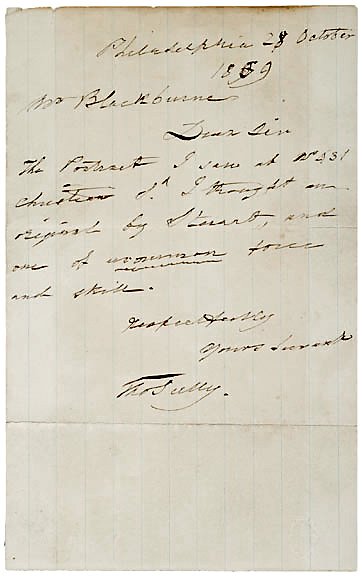 Philadelphia 28 October
1859
Mr Blackburne
Dear Sir
The Portrait I saw at No 431
Christian St I thought an
original by Stuart, and
one of uncommon force
and skill.
Respectfully
Yours Servant
Tho Sully.